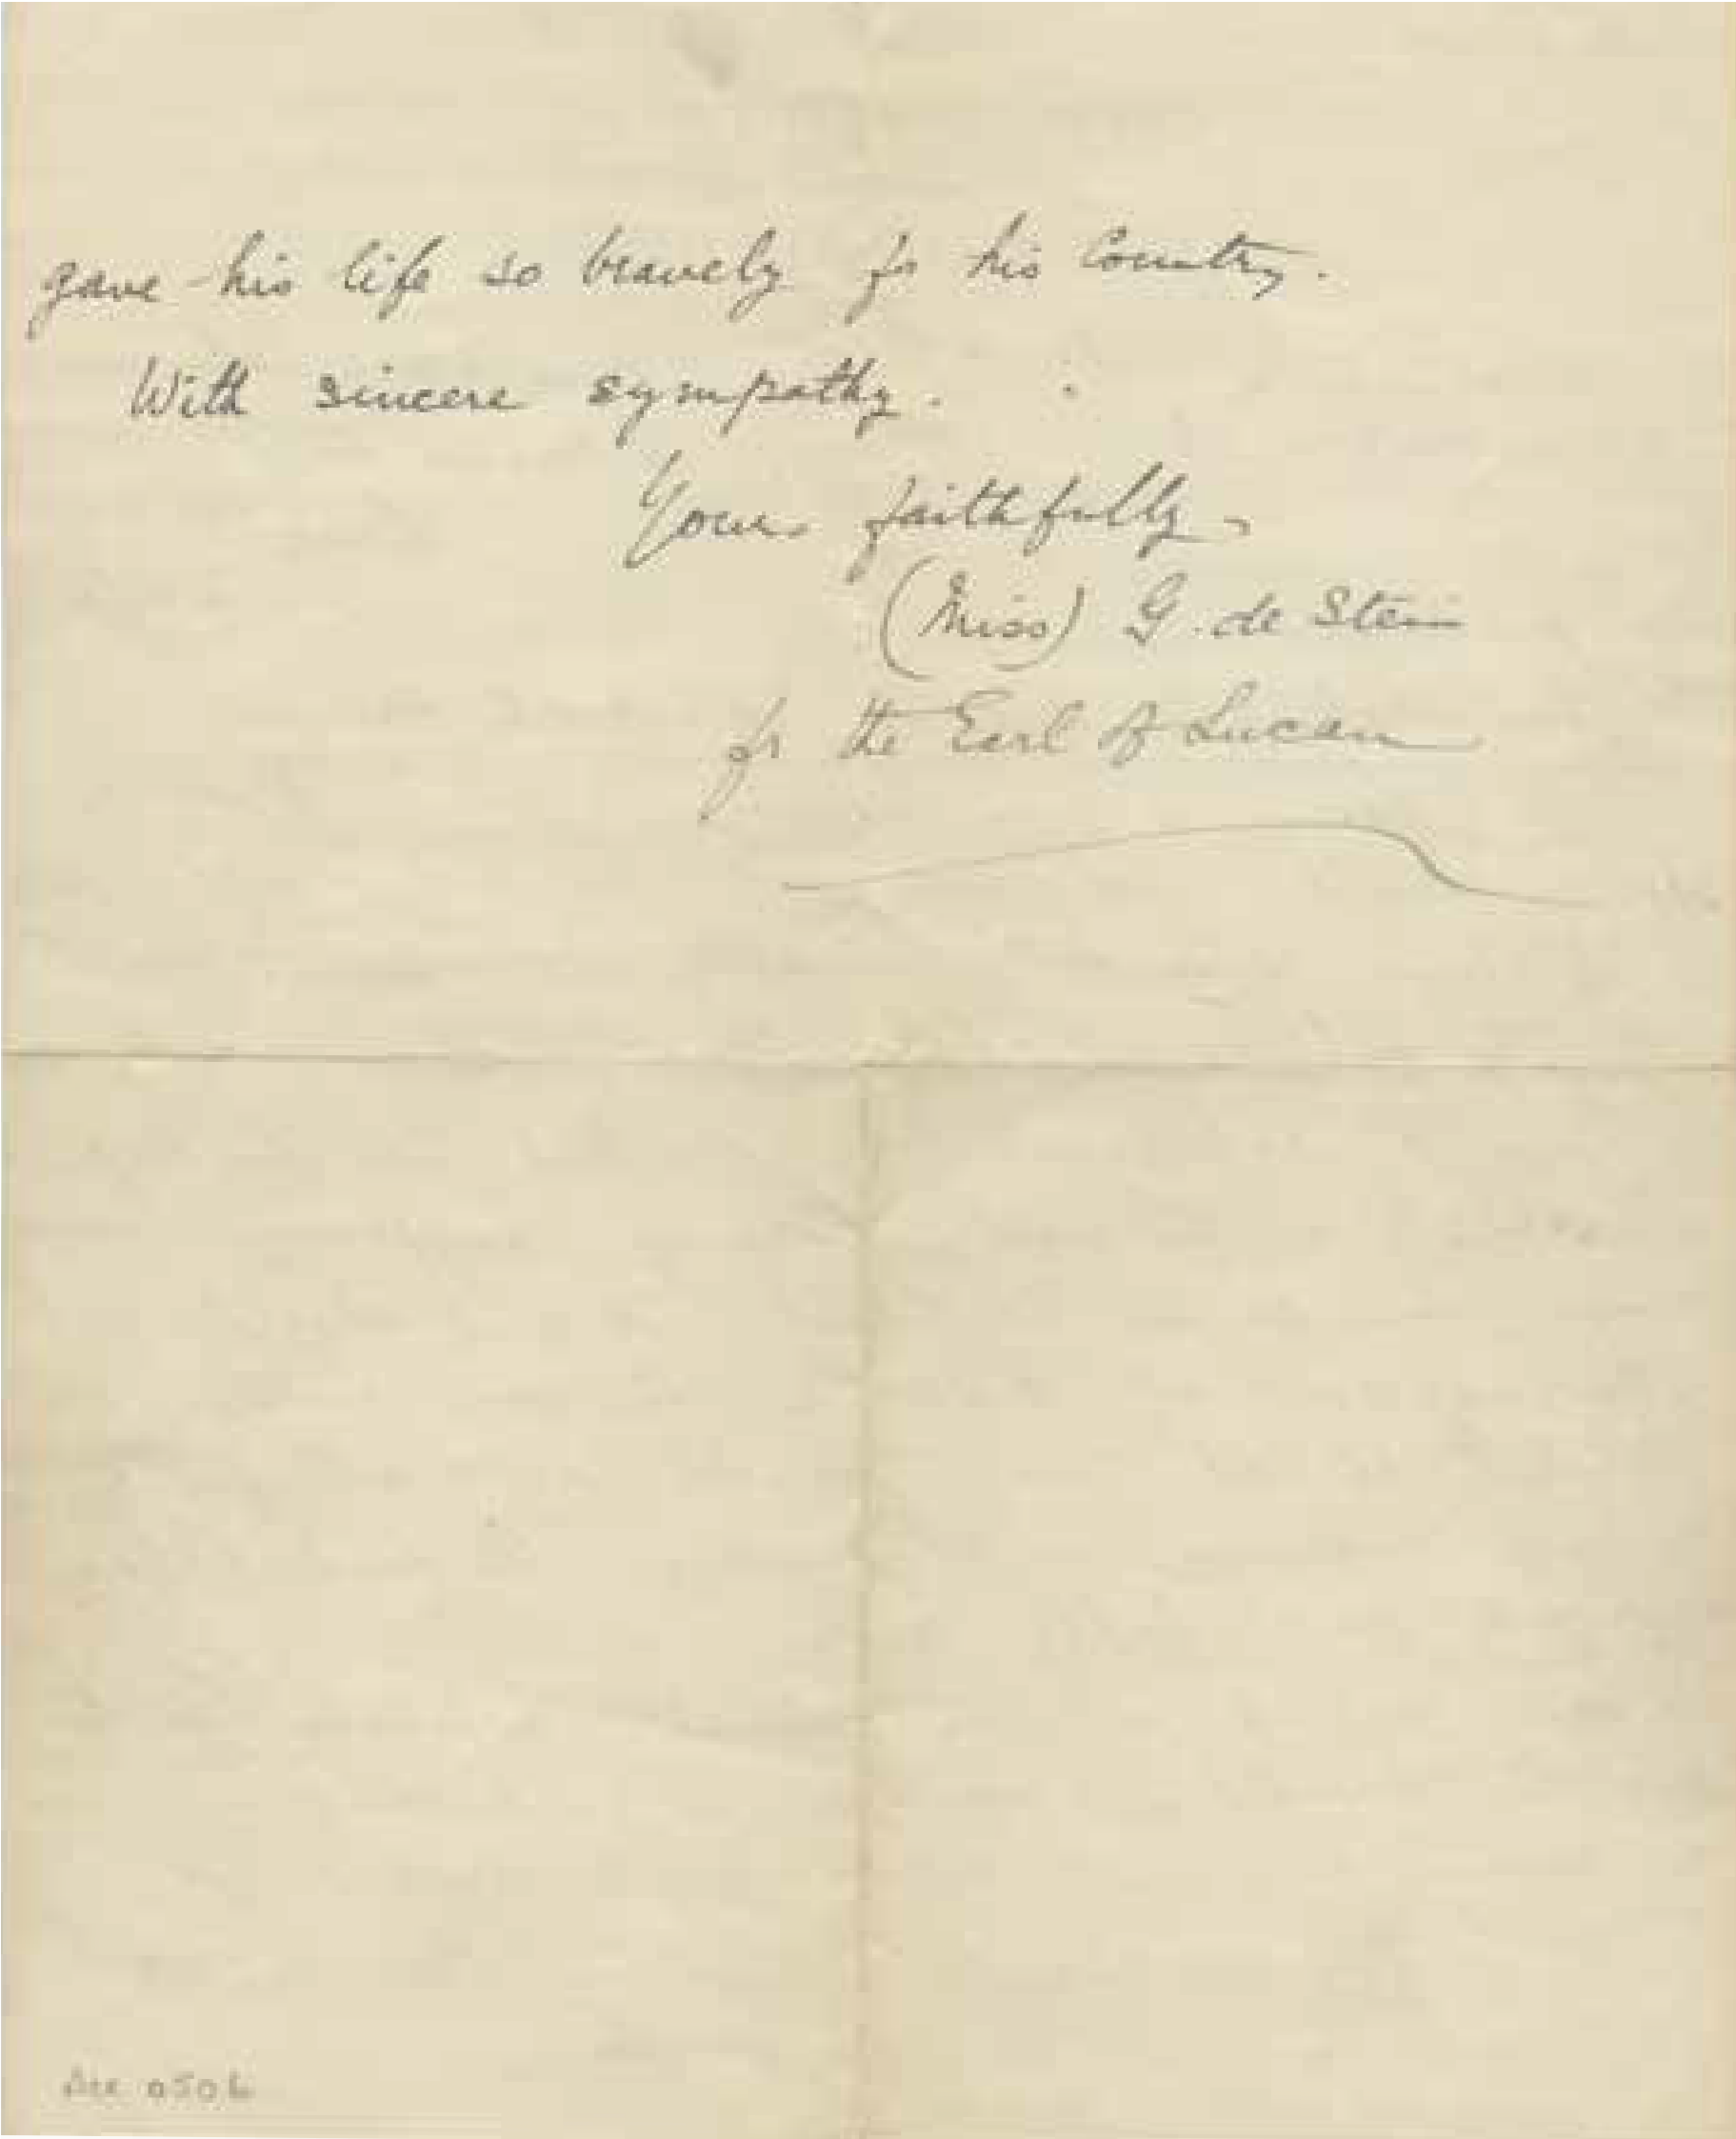 gave his life so bravely for his Country.
With sincere sympathy.
Yours faithfully,
(Miss) G. de Stein
for the Earl of Lucan